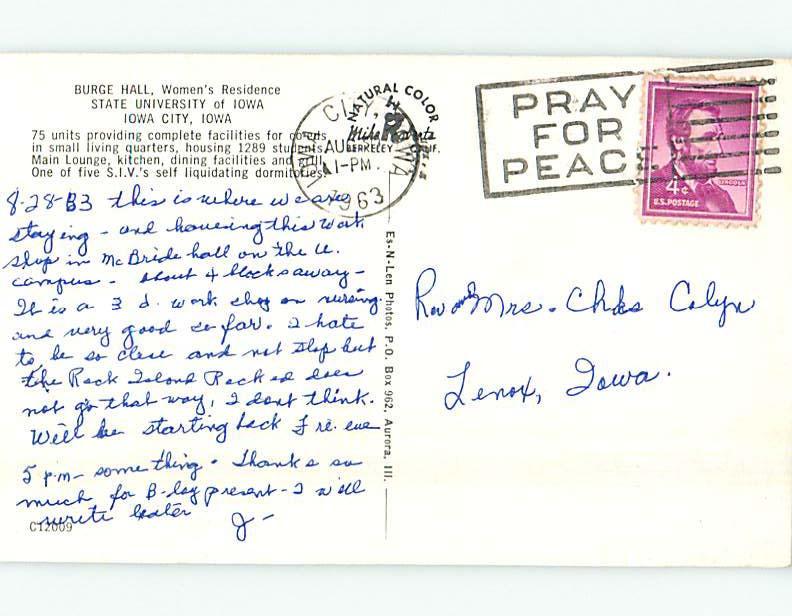 BURGE HALL, Women's Residence
STATE UNIVERSITY of IOWA
IOWA CITY, IOWA
75 units providing complete facilities for co-eds
in small living quarters, housing 1289 students.
Main Lounge, kitchen, dining facilities and
One of five S.I.V.'s self liquidating dormitories.
NATURAL COLOR
Mike Roberts
BERKELEY
CITY, IOWA
AU
1-PM
1963
PRAY
FOR
PEACE
4¢
LINCOLN
U.S. POSTAGE
8-28-63 this is where we are
staying - and having this work
shop in McBride hall on the U.
campus - about 4 blocks away -
It is a 3 d. work shop on nursing
and very good so far. I hate
to be so close and not stop but
the Rock Island Rocked does
not go that way, I dont think.
Will be starting back Fri. eve
5 p.m - something. Thanks so
much for B-day present - I will
write later J-
CT2009
Es-N-Len Photos, P.O. Box 962, Aurora, Ill.
Rev and Mrs. Colyn
Lenox, Iowa.